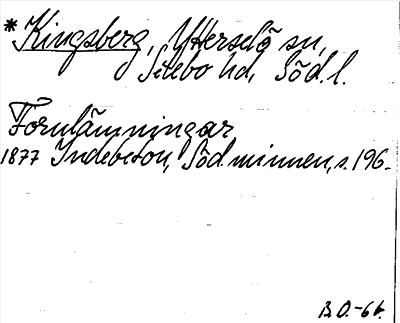 * Kingsberg, Ytterselö sn,
Selebo hd, Söd. l.
Fornlämningar
1877 Indebetou, Söd. minnen, s. 196.
B.O.-66.